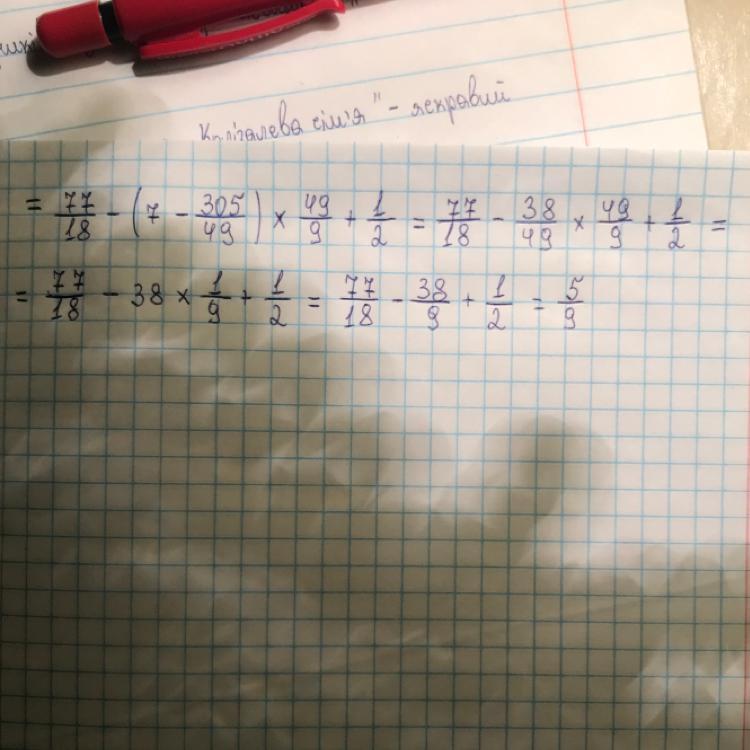 сім'я" - яскравий
= 77/18 - (7 - 305/49) × 49/9 + 1/2 = 77/18 - 38/49 × 49/9 + 1/2 =
= 77/18 - 38 × 1/9 + 1/2 = 77/18 - 38/9 + 1/2 = 5/9